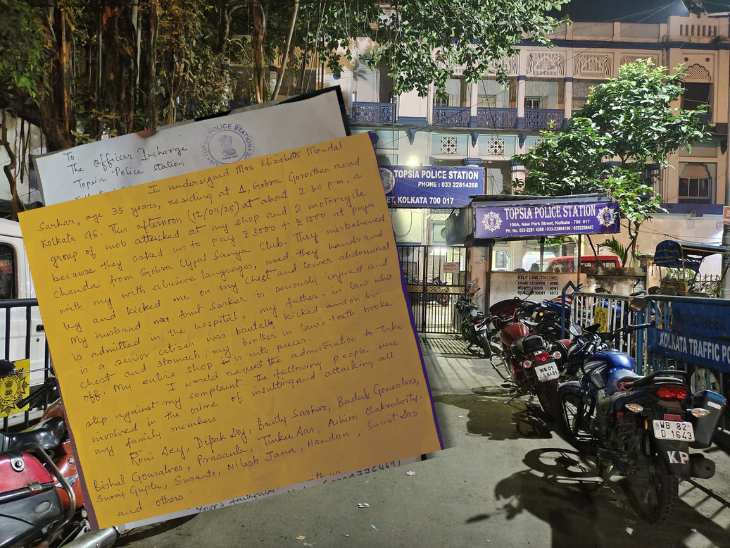 To
The Officer Incharge
Topsia Police station
POLICE STATION
I undersigned Mrs Elizabeth Mondal
Sarkar, age 35 years, residing at 1, Gobra Gorosthan road
Kolkata 46. This afternoon (12/09/25) at about 2:30 p.m. a
group of mob attacked at my shop and 2 motorcycle
because they asked us to pay ₹3000 - ₹1000 as puja
chanda from Gobra Ujjal Sangha Club. They misbehaved
with my with abusive languages, used they hands and
leg and kicked me on my chest and lower abdominal
My husband Mr Amit Sarkar is seriously injured and
is admitted in the hospital, my father in law who
is a senior citizen was badally kicked and on his
chest and stomach, my brother in law's teeth broke
off. My entire shop is into pieces.
I would request the administration to take
step against my complaint. The following people were
involved in the crime of insulting and attacking all
my family members.
Roni Dey, Dipak Dey, Bauty Sarkar, Badal Gonsalves,
Bishal Gonsalves, Prasanta, Tinku Das, Achim Chakraborty,
Suraj Gupta, Susanta, Nilesh Jana, Nandan, Surat Das
and others
TOPSIA POLICE STATION
PHONE : 033 22814268
ET, KOLKATA 700 017
TOPSIA POLICE STATION
KOLKATA TRAFFIC PO
WB 82
D 1643
KP